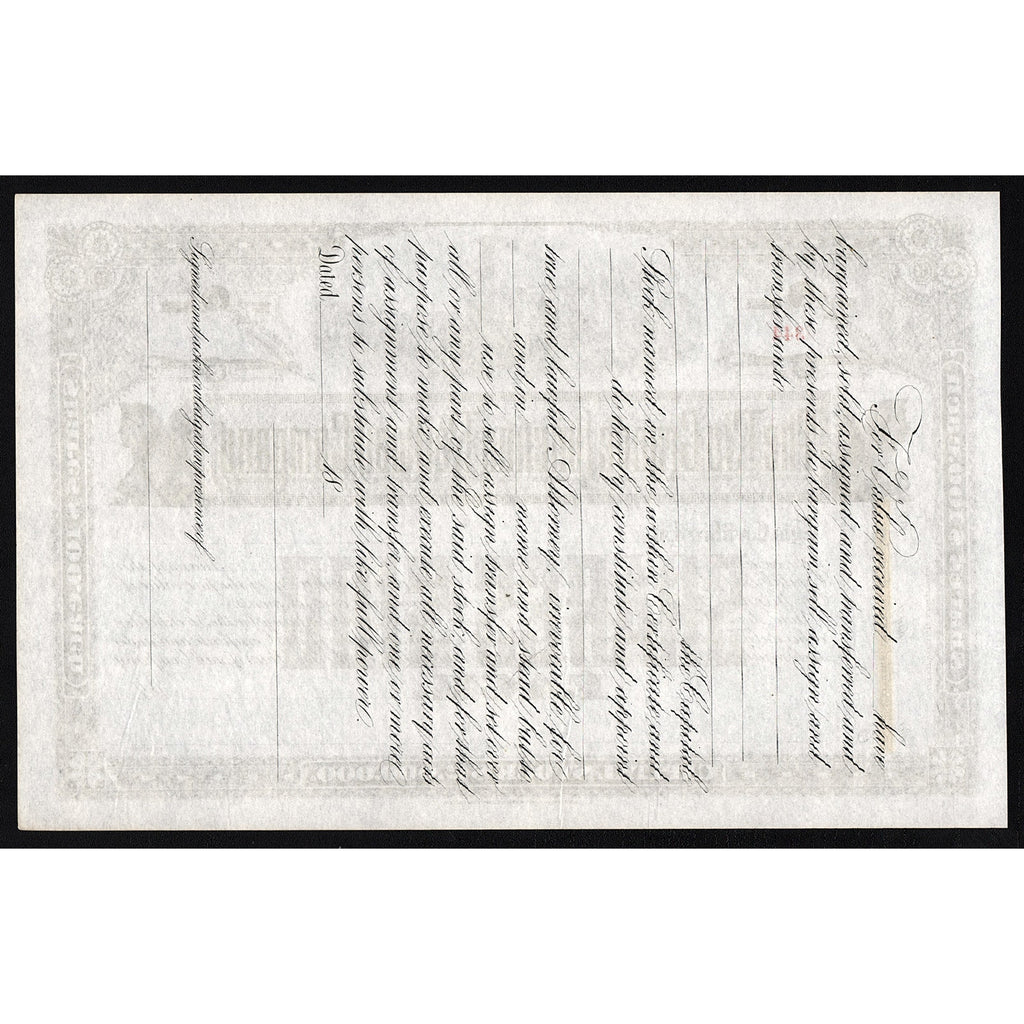 For Value received hav
bargained, sold, assigned and transferred and
by these presents do bargain, sell, assign and
transfer unto
the Capital
Stock named in the within Certificate and
do hereby constitute and appoint
true and lawful Attorney, irrevocable for
and in name and stead but to
use to sell, assign, transfer and set over
all or any part of the said stock and for that
purpose to make and execute all necessary acts
of assignment and transfer, and one or more
persons to substitute with like full power.
Dated 18
Signed and acknowledged in presence of